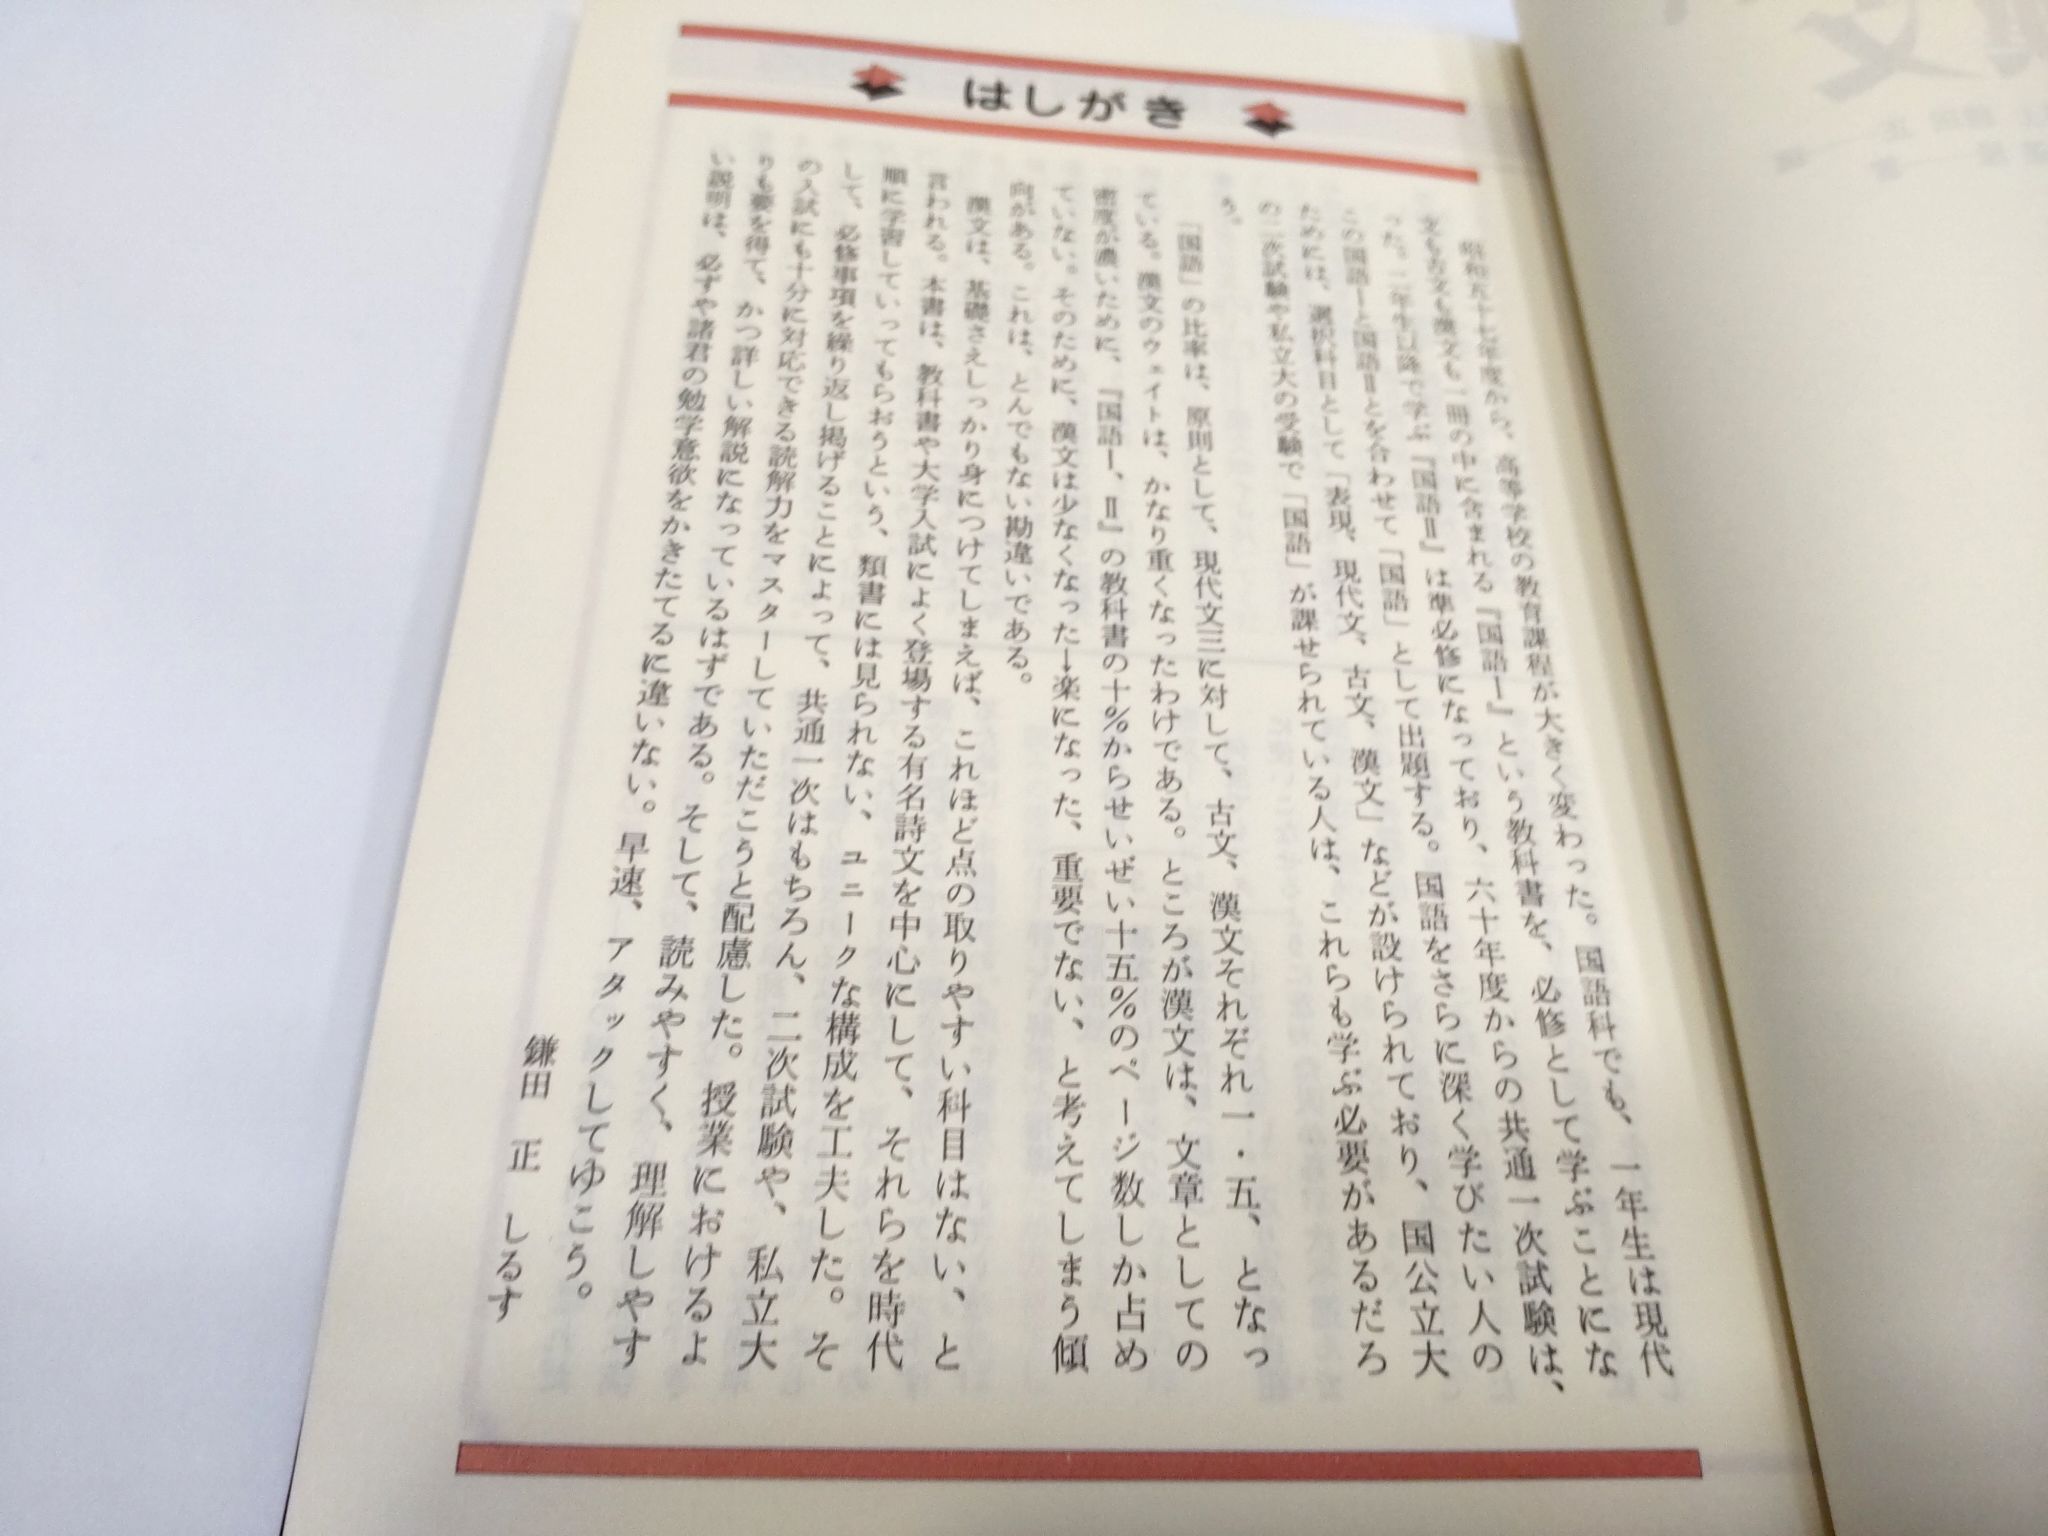 はしがき
昭和五十七年度から、高等学校の教育課程が大きく変わった。国語科でも、一年生は現代
文も古文も漢文も一冊の中に含まれる『国語Ⅰ』という教科書を、必修として学ぶことにな
った。二年生以降で学ぶ『国語Ⅱ』は準必修になっており、六十年度からの共通一次試験は、
この国語Ⅰと国語Ⅱとを合わせて「国語」として出題する。国語をさらに深く学びたい人の
ためには、選択科目として「表現、現代文、古文、漢文」などが設けられており、国公立大
の二次試験や私立大の受験で「国語」が課せられている人は、これらも学ぶ必要があるだろ
う。
「国語」の比率は、原則として、現代文三に対して、古文、漢文それぞれ一・五、となっ
ている。漢文のウェイトは、かなり重くなったわけである。ところが漢文は、文章としての
密度が濃いために、『国語Ⅰ、Ⅱ』の教科書の十％からせいぜい十五％のページ数しか占め
ていない。そのために、漢文は少なくなった→楽になった、重要でない、と考えてしまう傾
向がある。これは、とんでもない勘違いである。
漢文は、基礎さえしっかり身につけてしまえば、これほど点の取りやすい科目はない、と
言われる。本書は、教科書や大学入試によく登場する有名詩文を中心にして、それらを時代
順に学習していってもらおうという、類書には見られない、ユニークな構成を工夫した。そ
して、必修事項を繰り返し掲げることによって、共通一次はもちろん、二次試験や、私立大
の入試にも十分に対応できる読解力をマスターしていただこうと配慮した。授業におけるよ
りも要を得て、かつ詳しい解説になっているはずである。そして、読みやすく、理解しやす
い説明は、必ずや諸君の勉学意欲をかきたてるに違いない。早速、アタックしてゆこう。
鎌田 正 しるす